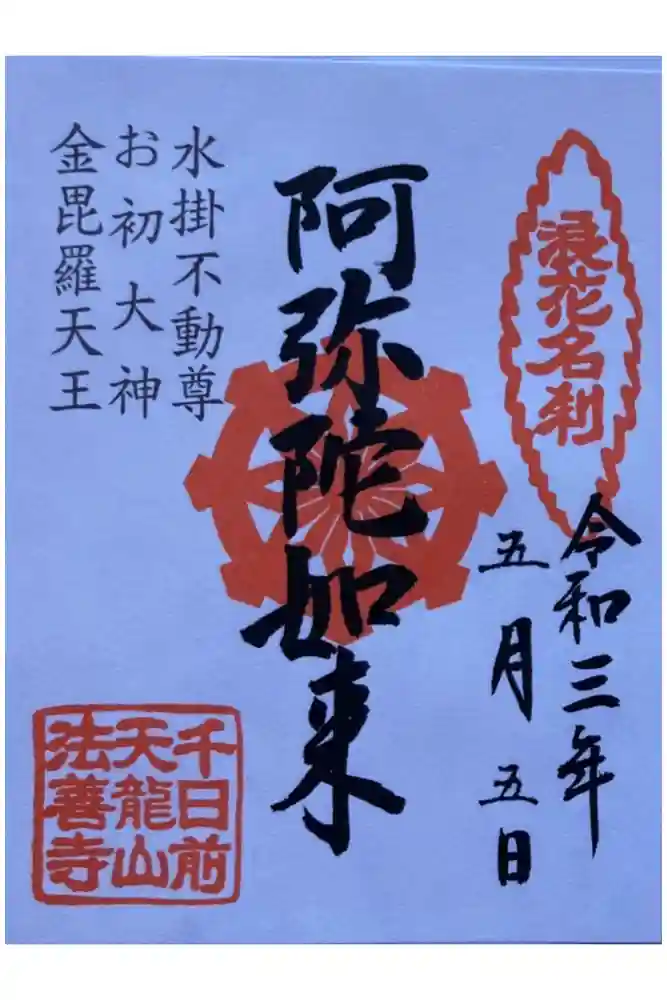 浪花名刹
令和三年
五月五日
阿弥陀如来
水掛不動尊
お初大神
金毘羅天王
千日前
天龍山
法善寺